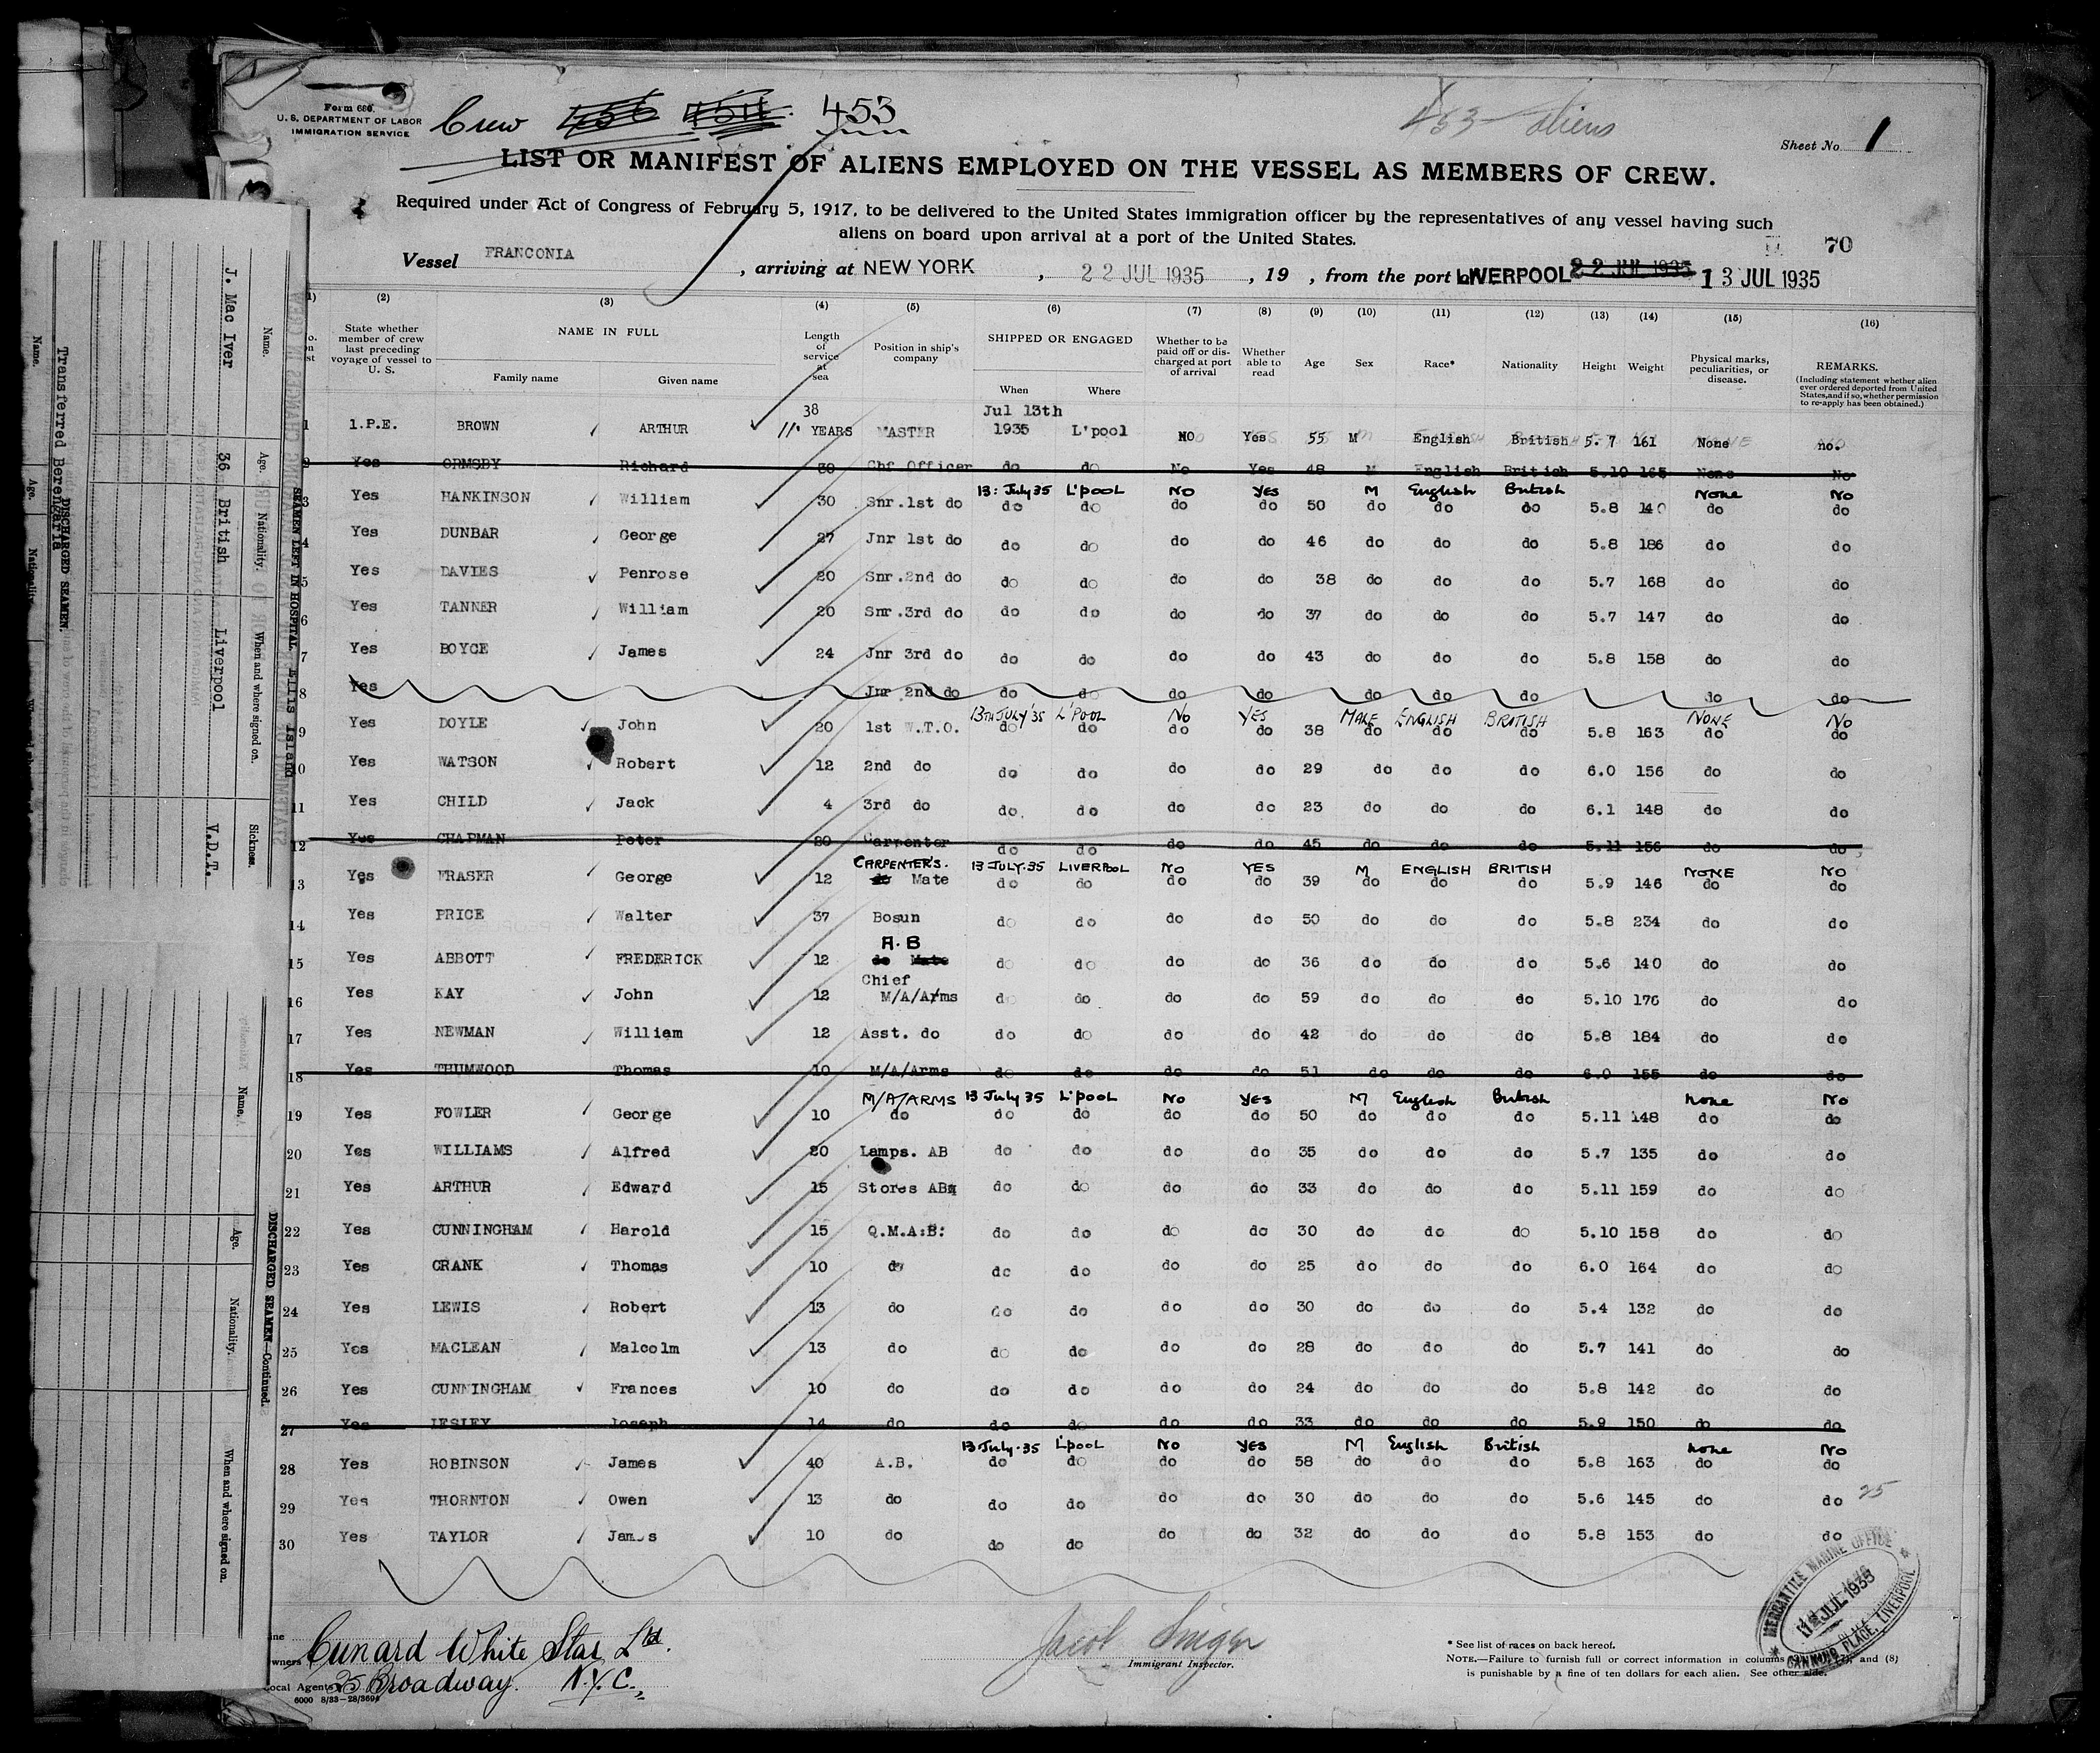 Form 680.
U. S. DEPARTMENT OF LABOR
IMMIGRATION SERVICE
Crew 453
453 aliens
Sheet No. 1
LIST OR MANIFEST OF ALIENS EMPLOYED ON THE VESSEL AS MEMBERS OF CREW.
Required under Act of Congress of February 5, 1917, to be delivered to the United States immigration officer by the representatives of any vessel having such
aliens on board upon arrival at a port of the United States.
70
Vessel FRANCONIA, arriving at NEW YORK, 22 JUL 1935, 19 , from the port LIVERPOOL 22 JUL 1935 13 JUL 1935
(2) (3) (4) (5) (6) (7) (8) (9) (10) (11) (12) (13) (14) (15) (16)
State whether member of crew last preceding voyage of vessel to U. S.
NAME IN FULL
Family name Given name
Length of service at sea
Position in ship's company
SHIPPED OR ENGAGED
When Where
Whether to be paid off or discharged at port of arrival
Whether able to read
Age Sex Race* Nationality Height Weight
Physical marks, peculiarities, or disease.
REMARKS.
(Including statement whether alien ever ordered deported from United States, and if so, whether permission to re-apply has been obtained.)
38 Jul 13th
1 1.P.E. BROWN ARTHUR 11 YEARS MASTER 1935 L'pool NO Yes 55 M English British 5.7 161 None no.
2 Yes ORMSBY Richard 30 Chf Officer do do No Yes 48 M English British 5.10 165 None No
13: July 35 L'pool No Yes M English British None No
3 Yes HANKINSON William 30 Snr.1st do do do do do 50 do do do 5.8 140 do do
4 Yes DUNBAR George 27 Jnr 1st do do do do do 46 do do do 5.8 186 do do
5 Yes DAVIES Penrose 20 Snr.2nd do do do do do 38 do do do 5.7 168 do do
6 Yes TANNER William 20 Snr.3rd do do do do do 37 do do do 5.7 147 do do
7 Yes BOYCE James 24 Jnr 3rd do do do do do 43 do do do 5.8 158 do do
8 Yes Jnr 2nd do do do do do do do do do do
13TH JULY '35 L'POOL No YES MALE ENGLISH BRITISH NONE No
9 Yes DOYLE John 20 1st W.T.O. do do do do 38 do do do 5.8 163 do do
10 Yes WATSON Robert 12 2nd do do do do do 29 do do do 6.0 156 do do
11 Yes CHILD Jack 4 3rd do do do do do 23 do do do 6.1 148 do do
12 Yes CHAPMAN Peter 20 Carpenter do do do do 45 do do do 5.11 156 do do
CARPENTER'S. 13 JULY.35 LIVERPOOL No YES M ENGLISH BRITISH NONE No
13 Yes FRASER George 12 do Mate do do do do 39 do do do 5.9 146 do do
14 Yes PRICE Walter 37 Bosun do do do do 50 do do do 5.8 234 do do
A.B
15 Yes ABBOTT FREDERICK 12 do Mate do do do do 36 do do do 5.6 140 do do
Chief
16 Yes KAY John 12 M/A/Arms do do do do 59 do do do 5.10 176 do do
17 Yes NEWMAN William 12 Asst. do do do do do 42 do do do 5.8 184 do do
18 Yes THUMWOOD Thomas 10 M/A/Arms do do do do 51 do do do 6.0 155 do do
M/A/ARMS 13 July 35 L'pool No Yes M English British None No
19 Yes FOWLER George 10 do do do do do 50 do do do 5.11 148 do do
20 Yes WILLIAMS Alfred 20 Lamps. AB do do do do 35 do do do 5.7 135 do do
21 Yes ARTHUR Edward 15 Stores AB do do do do 33 do do do 5.11 159 do do
22 Yes CUNNINGHAM Harold 15 Q.M.A:B: do do do do 30 do do do 5.10 158 do do
23 Yes CRANK Thomas 10 do do do do do 25 do do do 6.0 164 do do
24 Yes LEWIS Robert 13 do do do do do 30 do do do 5.4 132 do do
25 Yes MACLEAN Malcolm 13 do do do do do 28 do do do 5.7 141 do do
26 Yes CUNNINGHAM Frances 10 do do do do do 24 do do do 5.8 142 do do
27 Yes LESLEY Joseph 14 do do do do do 33 do do do 5.9 150 do do
13 July.35 L'pool No Yes M English British None No
28 Yes ROBINSON James 40 A.B. do do do do 58 do do do 5.8 163 do do
29 Yes THORNTON Owen 13 do do do do do 30 do do do 5.6 145 do do 25
30 Yes TAYLOR James 10 do do do do do 32 do do do 5.8 153 do do
MERCANTILE MARINE OFFICE
JUL 1935
CANNING PLACE, LIVERPOOL
Cunard White Star Ltd.
Local Agents 25 Broadway. N.Y.C.
6000 8/33—28/3694
Jacob
Immigrant Inspector.
* See list of races on back hereof.
NOTE.—Failure to furnish full or correct information in columns and (8)
is punishable by a fine of ten dollars for each alien. See other side.
Name. Age. Nationality. When and where signed on. Sickness.
J. Mac Iver 36 British Liverpool V.D.T.
SEAMEN LEFT IN HOSPITAL Ellis Island
DISCHARGED SEAMEN.
Transferred Berengaria
Name. Age. Nationality.
DISCHARGED SEAMEN—Continued.
Name. Age. Nationality. When and where signed on.